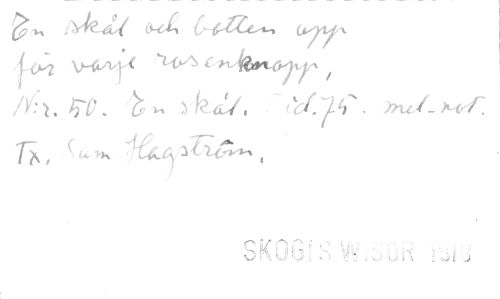 En skål och botten opp
för varje rosenknopp,
N:r. 50. En skål. Sid. 75. mel-not.
Tx. Sam Hagström.
SKOGIS WISOR